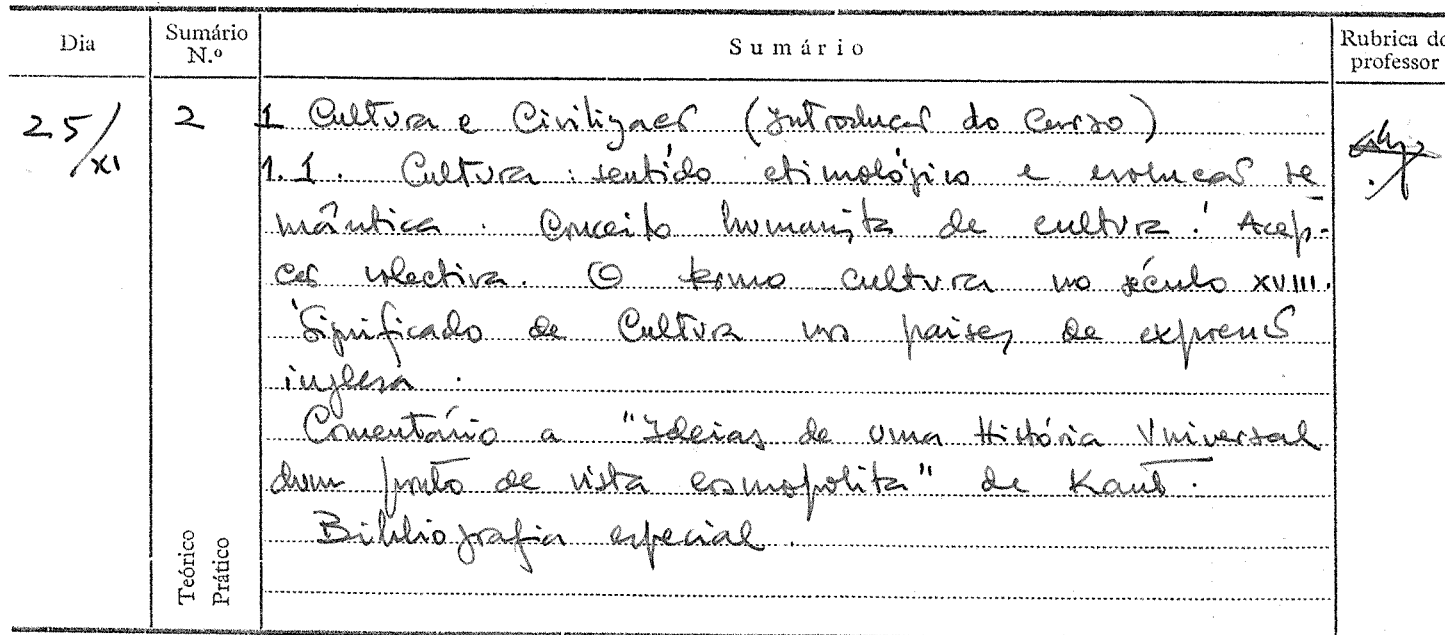 Dia Sumário N.º Sumário Rubrica do professor
25/XI 2 1 Cultura e Civilização (Introdução do Curso)
1.1. Cultura: sentido etimológico e evolução se-
mântica. Conceito humanista de cultura. Acep-
ção colectiva. O termo cultura no século XVIII.
Significado de Cultura nos países de expressão
inglesa.
Comentário a "Ideias de uma História Universal
dum ponto de vista cosmopolita" de Kant.
Bibliografia especial.
Teórico
Prático